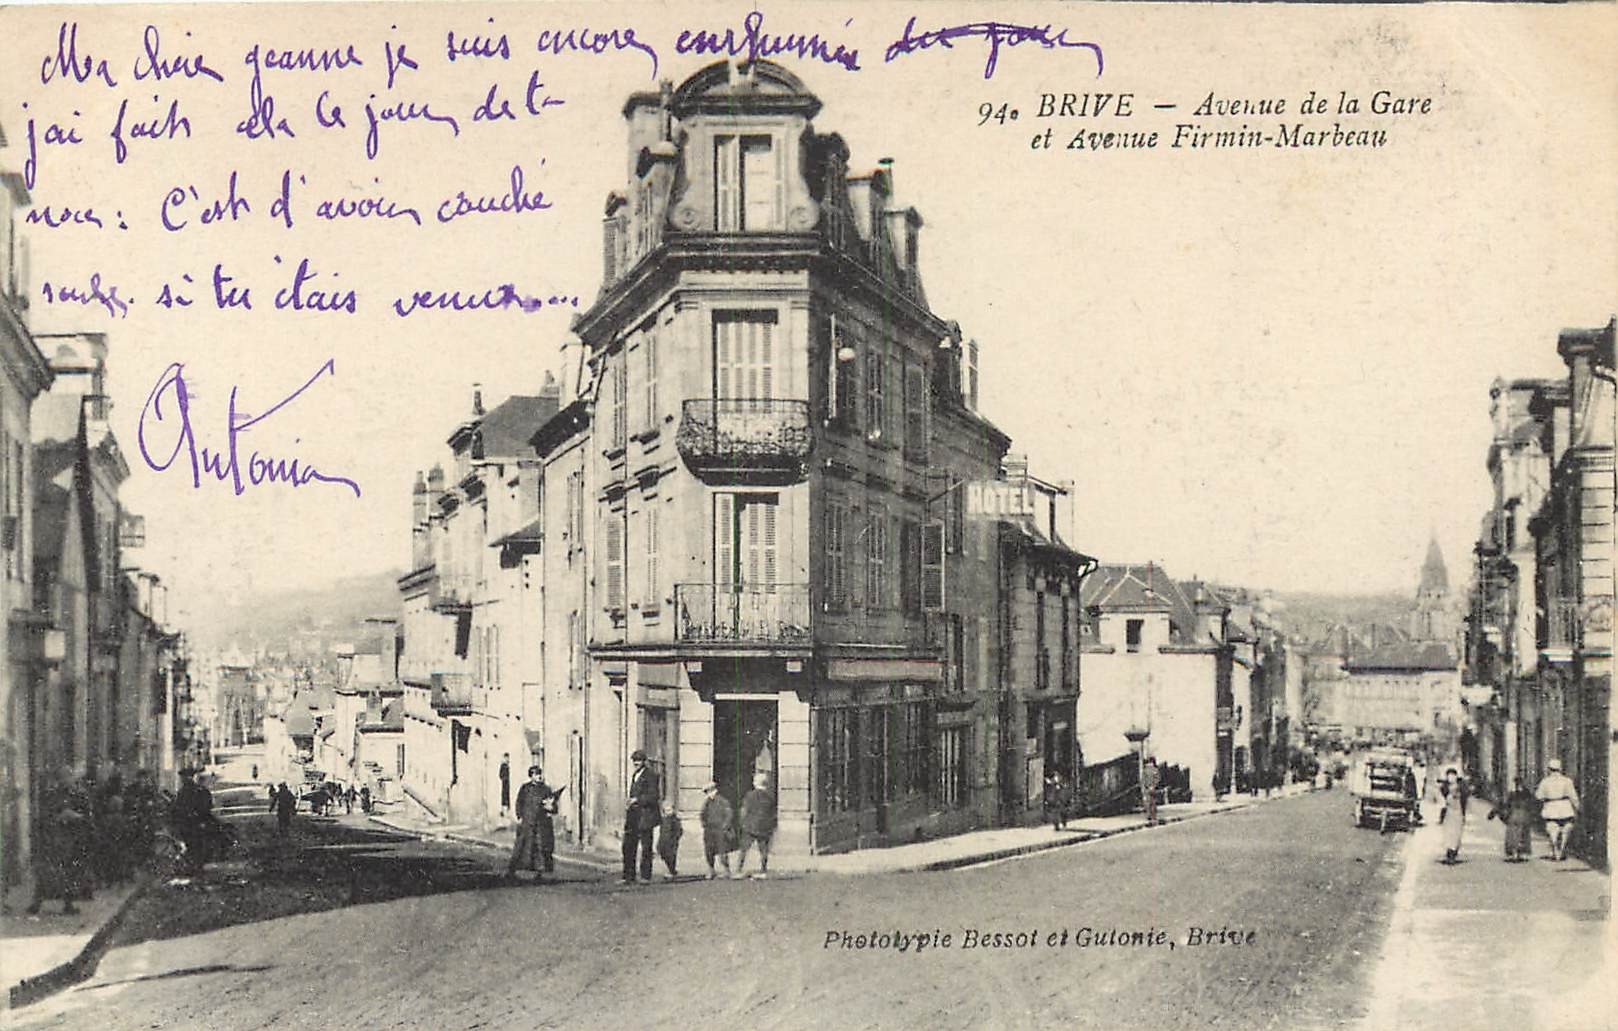 Ma chère Jeanne je suis encore enrhumée du jour
j'ai fait cela le jour de ta
noce : C'est d'avoir couché
seule. si tu étais venue....
Antonia
94. BRIVE — Avenue de la Gare
et Avenue Firmin-Marbeau
HOTEL
Phototypie Bessot et Guionie, Brive